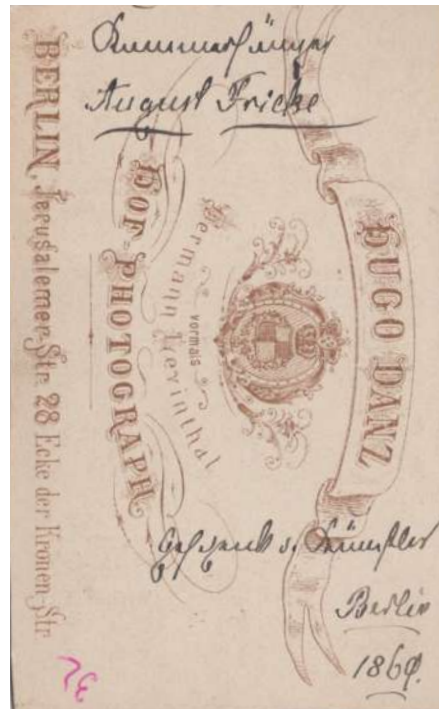 Kammersänger
August Fricke
HUGO DANZ
vormals
Hermann Levinthal
HOF-PHOTOGRAPH
BERLIN, Jerusalemer-Str. 28 Ecke der Kronen-Str.
Geschenk v. Künstler
Berlin
1869.
32